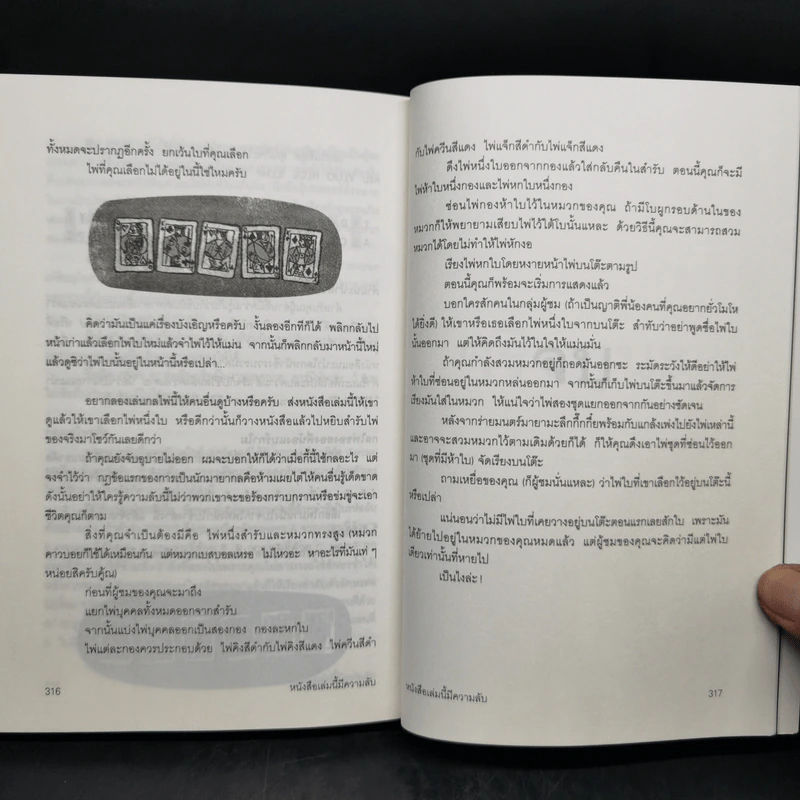 ทั้งหมดจะปรากฏอีกครั้ง ยกเว้นใบที่คุณเลือก
ไพ่ที่คุณเลือกไม่ได้อยู่ในนี้ใช่ไหมครับ
คิดว่ามันเป็นแค่เรื่องบังเอิญหรือครับ งั้นลองอีกทีก็ได้ พลิกกลับไป
หน้าเก่าแล้วเลือกไพ่ใบใหม่แล้วจำไพ่ไว้ให้แม่น จากนั้นก็พลิกกลับมาหน้านี้ใหม่
แล้วดูซิว่าไพ่ใบนั้นอยู่ในหน้านี้หรือเปล่า...
อยากลองเล่นกลไพ่นี้ให้คนอื่นดูบ้างหรือครับ ส่งหนังสือเล่มนี้ให้เขา
ดูแล้วให้เขาเลือกไพ่หนึ่งใบ หรือดีกว่านั้นก็วางหนังสือแล้วไปหยิบสำรับไพ่
ของจริงมาโชว์กันเลยดีกว่า
ถ้าคุณยังจับอุบายไม่ออก ผมจะบอกให้ก็ได้ว่าเมื่อกี้นี้ใช้กลอะไร แต่
จงจำไว้ว่า กฎข้อแรกของการเป็นนักมายากลคือห้ามเผยไต๋ให้คนอื่นรู้เด็ดขาด
ดังนั้นอย่าให้ใครรู้ความลับนี้ไม่ว่าพวกเขาจะขอร้องกราบกรานหรือข่มขู่จะเอา
ชีวิตคุณก็ตาม
สิ่งที่คุณจำเป็นต้องมีคือ ไพ่หนึ่งสำรับและหมวกทรงสูง (หมวก
คาวบอยก็ใช้ได้เหมือนกัน แต่หมวกเบสบอลเหรอ ไม่ไหวอะ หาอะไรที่มันเท่ ๆ
หน่อยสิครับคู้ณ)
ก่อนที่ผู้ชมของคุณจะมาถึง
แยกไพ่บุคคลทั้งหมดออกจากสำรับ
จากนั้นแบ่งไพ่บุคคลออกเป็นสองกอง กองละหกใบ
ไพ่แต่ละกองควรประกอบด้วย ไพ่คิงสีดำกับไพ่คิงสีแดง ไพ่ควีนสีดำ
316
หนังสือเล่มนี้มีความลับ
กับไพ่ควีนสีแดง ไพ่แจ็กสีดำกับไพ่แจ็กสีแดง
ดึงไพ่หนึ่งใบออกจากกองแล้วใส่กลับคืนในสำรับ ตอนนี้คุณก็จะมี
ไพ่ห้าใบหนึ่งกองและไพ่หกใบหนึ่งกอง
ซ่อนไพ่กองห้าใบไว้ในหมวกของคุณ ถ้ามีโบผูกรอบด้านในของ
หมวกก็ให้พยายามเสียบไพ่ไว้ใต้โบนั้นแหละ ด้วยวิธีนี้คุณจะสามารถสวม
หมวกได้โดยไม่ทำให้ไพ่หักงอ
เรียงไพ่หกใบโดยหงายหน้าไพ่บนโต๊ะตามรูป
ตอนนี้คุณก็พร้อมจะเริ่มการแสดงแล้ว
บอกใครสักคนในกลุ่มผู้ชม (ถ้าเป็นญาติพี่น้องคนที่คุณอยากยั่วโมโห
ได้ยิ่งดี) ให้เขาหรือเธอเลือกไพ่หนึ่งใบจากบนโต๊ะ สำทับว่าอย่าพูดชื่อไพ่ใบ
นั้นออกมา แต่ให้คิดถึงมันไว้ในใจให้แม่นมั่น
ถ้าคุณกำลังสวมหมวกอยู่ก็ถอดมันออกซะ ระมัดระวังให้ดีอย่าให้ไพ่
ห้าใบที่ซ่อนอยู่ในหมวกหล่นออกมา จากนั้นก็เก็บไพ่บนโต๊ะขึ้นมาแล้วจัดการ
เรียงมันใส่ในหมวก ให้แน่ใจว่าไพ่สองชุดแยกออกจากกันอย่างชัดเจน
หลังจากร่ายมนตร์มายามะลึกกึ๊กกี๋ยพร้อมกับแกล้งเพ่งไปยังไพ่เหล่านี้
และอาจจะสวมหมวกไว้ตามเดิมด้วยก็ได้ ก็ให้คุณดึงเอาไพ่ชุดที่ซ่อนไว้ออก
มา (ชุดที่มีห้าใบ) จัดเรียงบนโต๊ะ
ถามเหยื่อของคุณ (ก็ผู้ชมนั่นแหละ) ว่าไพ่ใบที่เขาเลือกไว้อยู่บนโต๊ะนี้
หรือเปล่า
แน่นอนว่าไม่มีไพ่ใบที่เคยวางอยู่บนโต๊ะตอนแรกเลยสักใบ เพราะมัน
ได้ย้ายไปอยู่ในหมวกของคุณหมดแล้ว แต่ผู้ชมของคุณจะคิดว่ามีแต่ไพ่ใบ
เดียวเท่านั้นที่หายไป
เป็นไงล่ะ !
หนังสือเล่มนี้มีความลับ
317